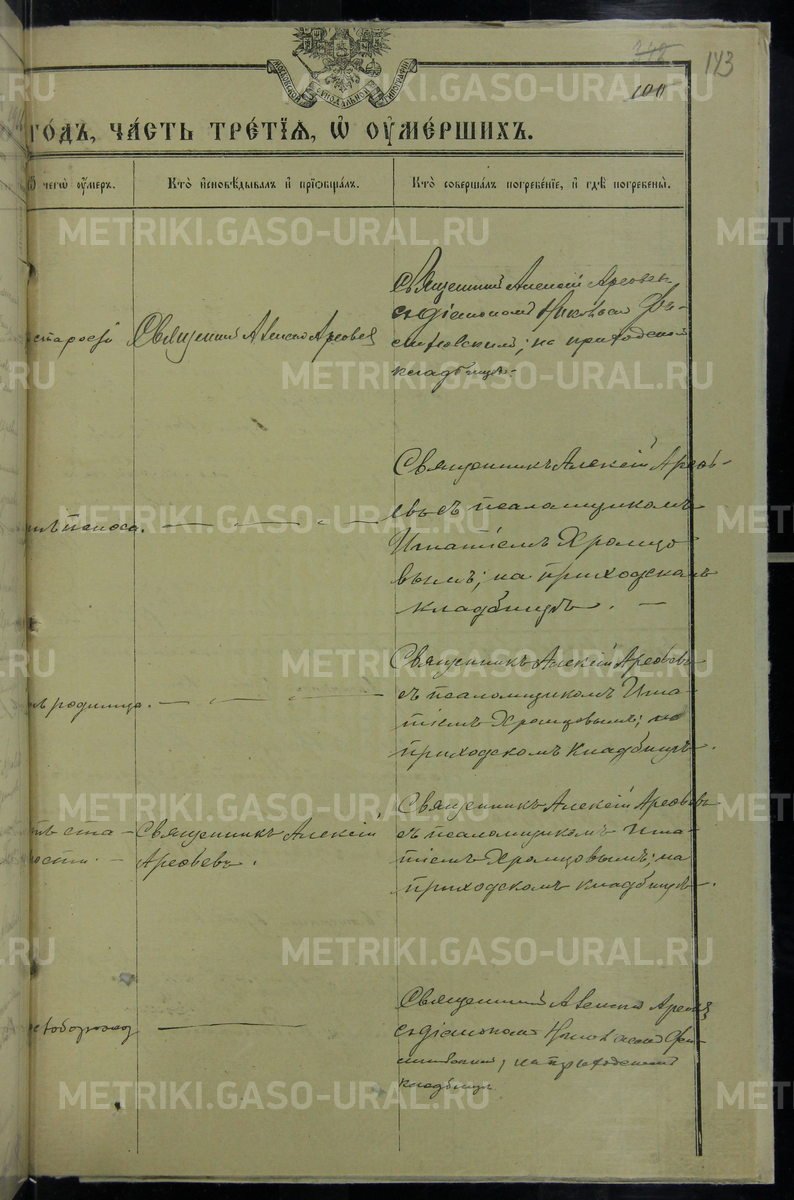 143
100
МОСКОВСКОЙ СѴНОДАЛЬНОЙ ТИПОГРАФІИ
ГО́ДЪ, ЧА́СТЬ ТРЕ́ТІЯ, Ѿ ОУМЕ́РШИХЪ.
Ѿ чегѡ̀ оу́меръ.
Кто̀ и҆сповѣ́дывалъ и҆ прїѡбща́лъ.
Кто̀ соверша́лъ погребе́нїе, и҆ гдѣ̀ погребены̀.
METRIKI.GASO-URAL.RU
старости
Священникъ Алексій Арефьевъ
Священникъ Алексій Арефьевъ
съ діакономъ Николаемъ
на приходскомъ
кладбищѣ.
поноса.
Священникъ Алексій Арефь-
евъ съ псаломщикомъ
Игнатіемъ Хромцо
вымъ; на приходскомъ
кладбищѣ.
родимца.
Священникъ Алексій Арефьевъ
съ псаломщикомъ Игна-
тіемъ Хромцовымъ; на
приходскомъ кладбищѣ.
ста-
рости.
Священникъ Алексій
Арефьевъ.
Священникъ Алексій Арефьевъ
съ псаломщикомъ Игна-
тіемъ Хромцовымъ; на
приходскомъ кладбищѣ.
Священникъ Алексій Арефьевъ
съ діакономъ Николаемъ
на приходскомъ
кладбищѣ